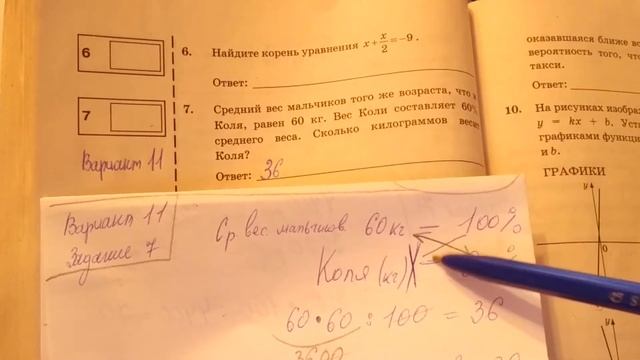 6
6. Найдите корень уравнения x + x/2 = -9 .
Ответ:
7
7. Средний вес мальчиков того же возраста, что и
Коля, равен 60 кг. Вес Коли составляет 60%
среднего веса. Сколько килограммов весит
Коля?
Ответ: 36
Вариант 11
оказавшаяся ближе
вероятность того, что
такси.
Ответ:
10. На рисунках
y = kx + b.
графиками
и b.
ГРАФИКИ
y
0
Вариант 11
Задание 7
Ср. вес мальчиков 60 кг = 100%
Коля (кг) X %
60 · 60 : 100 = 36
3600